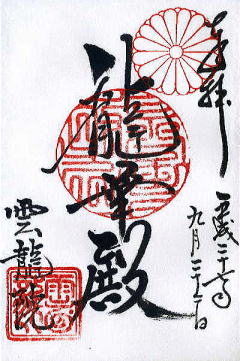 奉拝
平成二十七年
九月二十二日
龍華殿
雲龍院